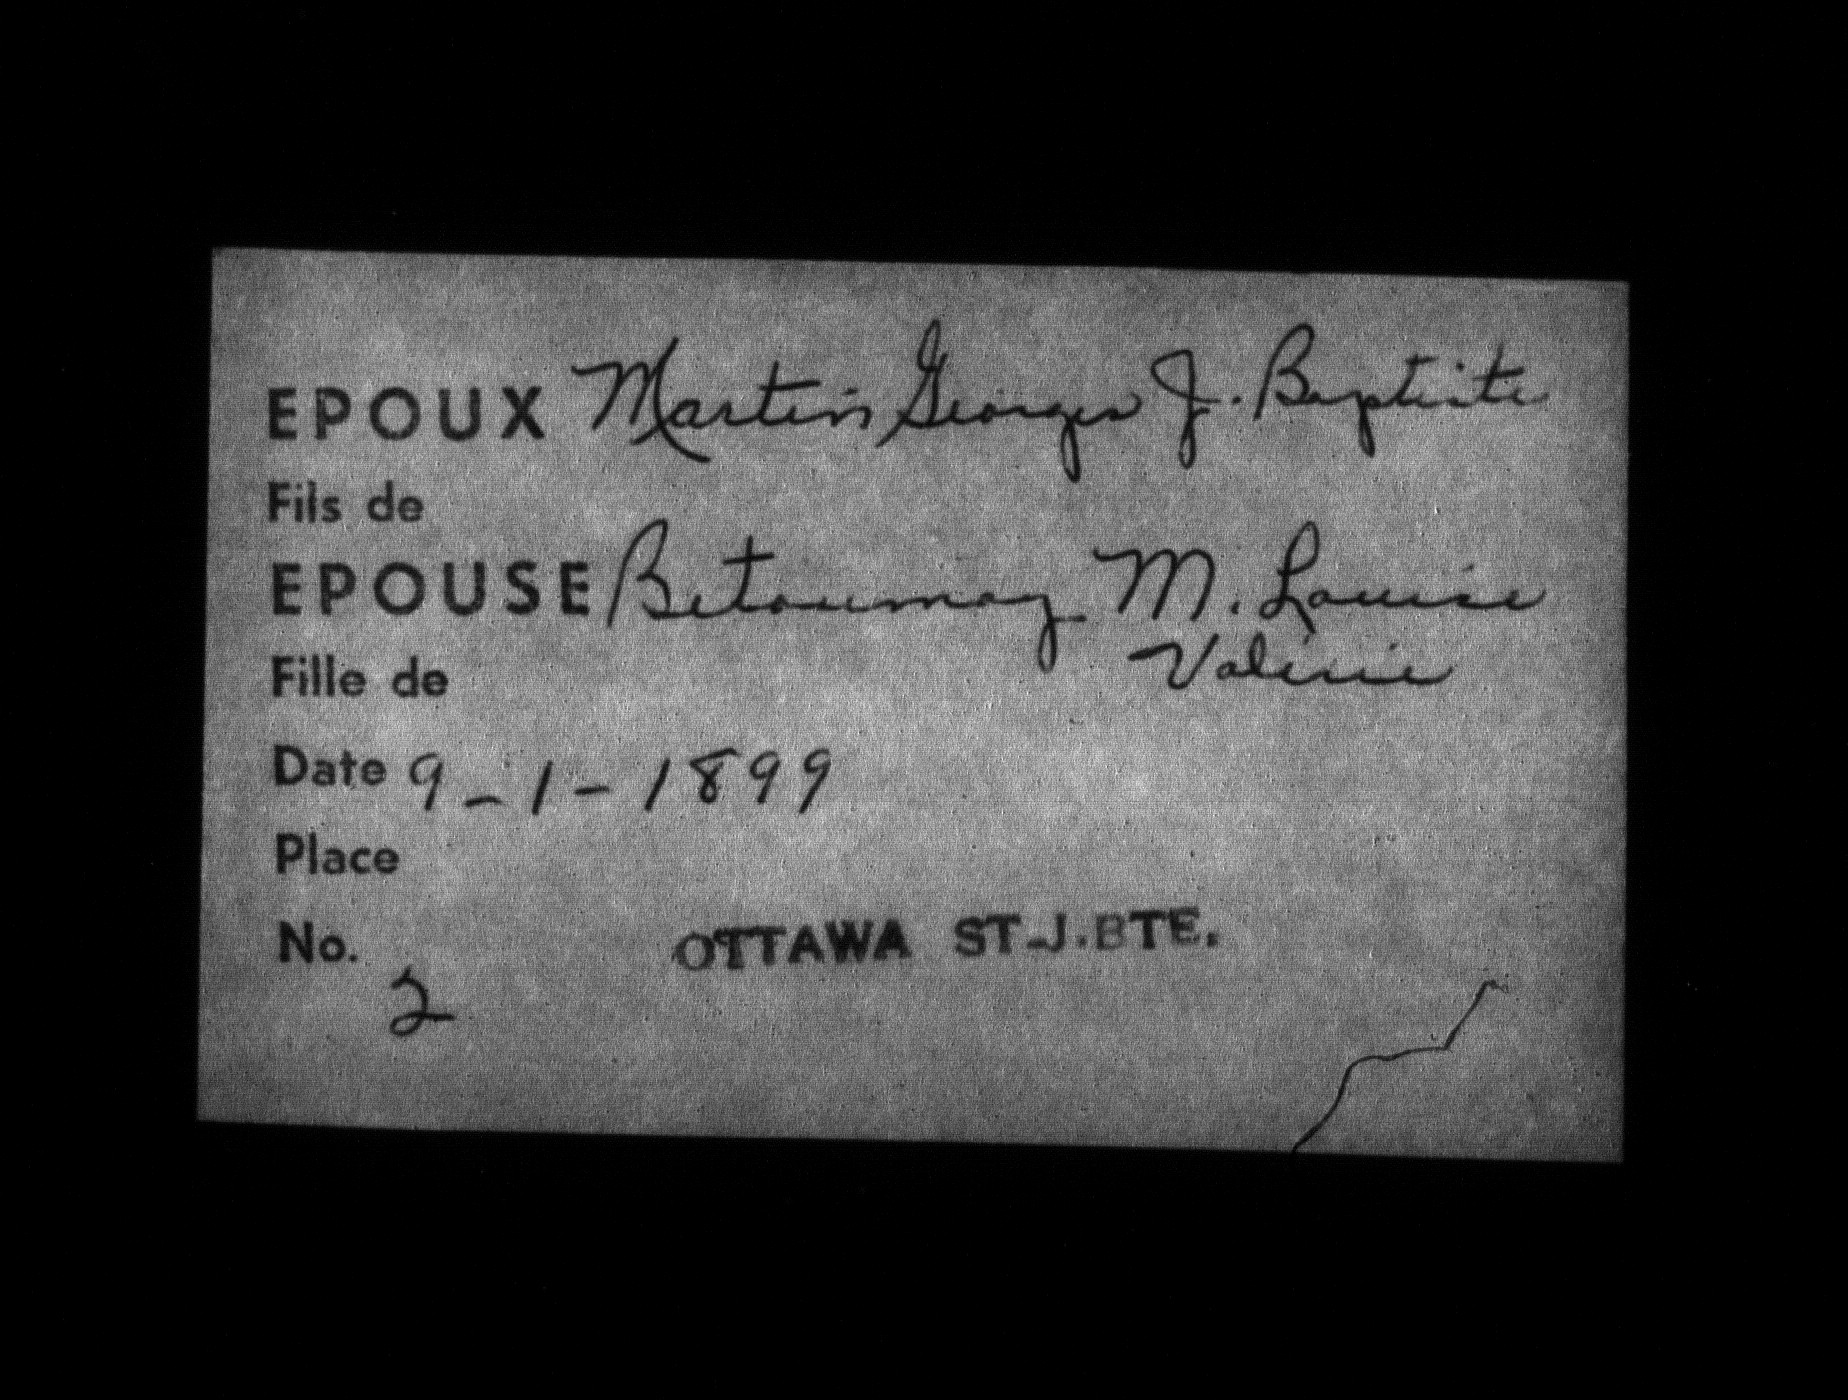 EPOUX Martin Georges J. Baptiste
Fils de
EPOUSE Betournay M. Louise
Valérie
Fille de
Date 9-1-1899
Place
No.
OTTAWA ST-J.BTE.
2